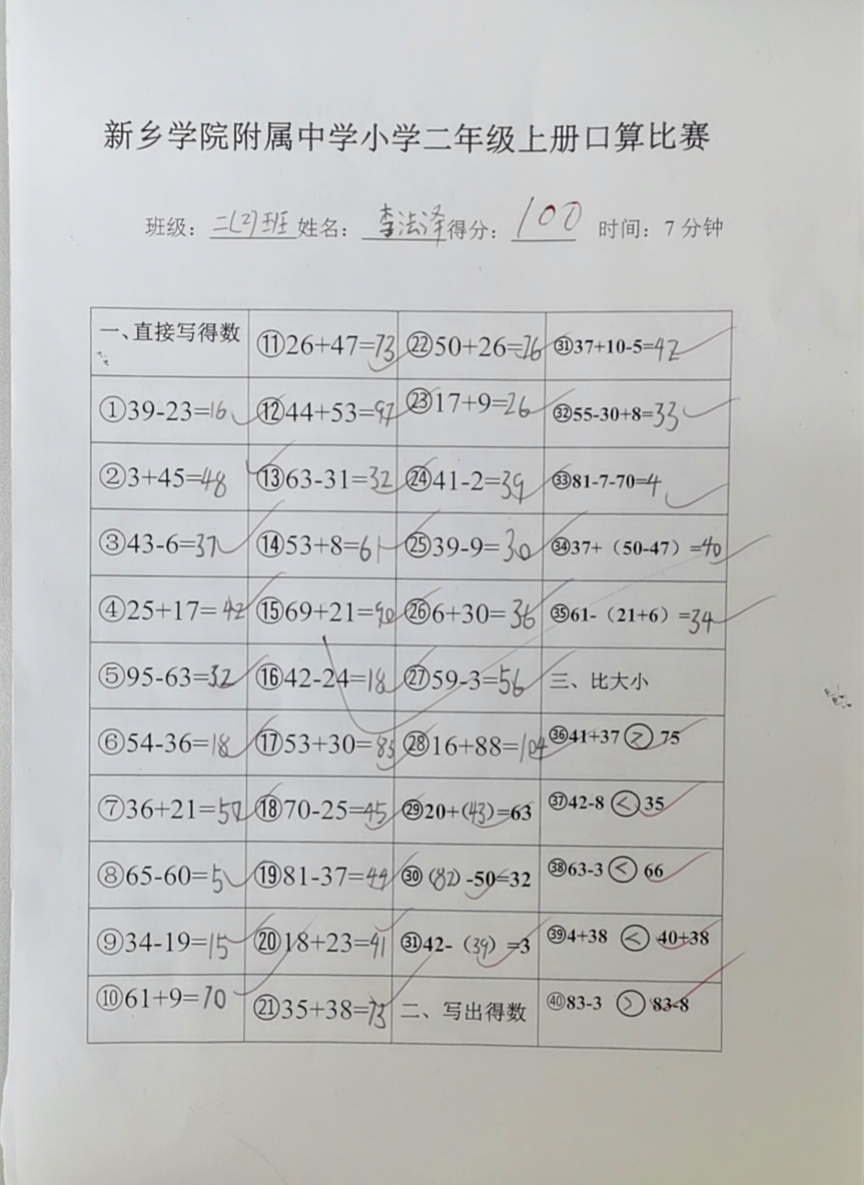 新乡学院附属中学小学二年级上册口算比赛
班级：二(2)班 姓名：李法泽 得分：100 时间：7分钟
一、直接写得数 ⑪26+47=73 ㉒50+26=76 ㉛37+10-5=42
①39-23=16 ⑫44+53=97 ㉓17+9=26 ㉜55-30+8=33
②3+45=48 ⑬63-31=32 ㉔41-2=39 ㉝81-7-70=4
③43-6=37 ⑭53+8=61 ㉕39-9=30 ㉞37+（50-47）=40
④25+17=42 ⑮69+21=90 ㉖6+30=36 ㉟61-（21+6）=34
⑤95-63=32 ⑯42-24=18 ㉗59-3=56 三、比大小
⑥54-36=18 ⑰53+30=83 ㉘16+88=104 ㊱41+37 > 75
⑦36+21=57 ⑱70-25=45 ㉙20+(43)=63 ㊲42-8 < 35
⑧65-60=5 ⑲81-37=44 ㉚(82)-50=32 ㊳63-3 < 66
⑨34-19=15 ⑳18+23=41 ㉛42-（39）=3 ㊴4+38 < 40+38
⑩61+9=70 ㉑35+38=73 二、写出得数 ㊵83-3 > 83-8